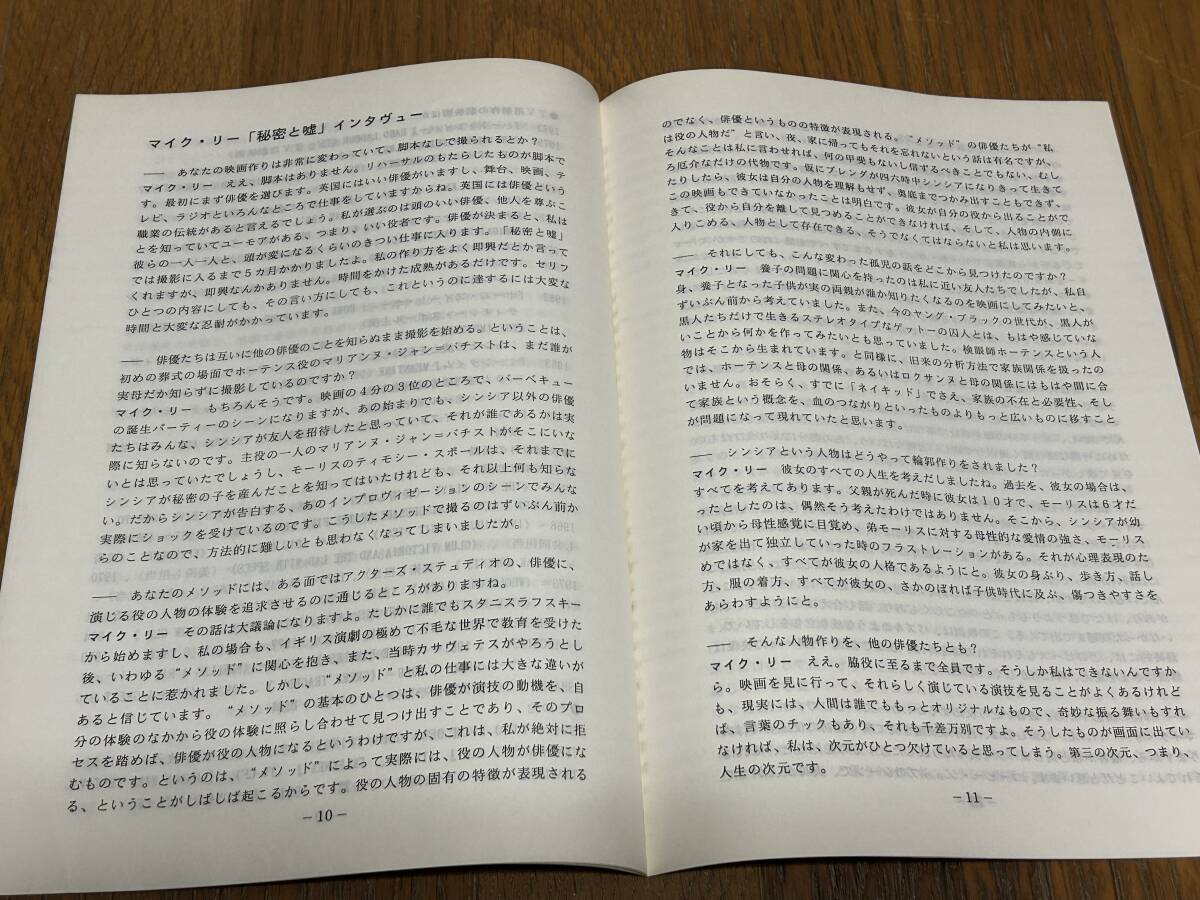 マイク・リー「秘密と嘘」インタヴュー
―― あなたの映画作りは非常に変わっていて、脚本なしで撮られるとか?
マイク・リー ええ、脚本はありません。リハーサルのもたらしたものが脚本で
す。最初にまず俳優を選びます。英国にはいい俳優がいますし、舞台、映画、テ
レビ、ラジオといろんなところで仕事をしていますからね。英国には俳優という
職業の伝統があると言えるでしょう。私が選ぶのは頭のいい俳優、他人を尊ぶこ
とを知っていてユーモアがある、つまり、いい役者です。俳優が決まると、私は
彼らの一人一人と、頭が変になるくらいのきつい仕事に入ります。「秘密と嘘」
では撮影に入るまで5ヵ月かかりましたよ。私の作り方をよく即興だとか言って
くれますが、即興なんかありません。時間をかけた成熟があるだけです。セリフ
ひとつの内容にしても、その言い方にしても、これというのに達するには大変な
時間と大変な忍耐がかかっています。
―― 俳優たちは互いに他の俳優のことを知らぬまま撮影を始める。ということは、
初めの葬式の場面でホーテンス役のマリアンヌ・ジャン=バチストは、まだ誰が
実母だか知らずに撮影しているのですか?
マイク・リー もちろんそうです。映画の4分の3位のところで、バーベキュー
の誕生パーティーのシーンになりますが、あの始まりでも、シンシア以外の俳優
たちはみんな、シンシアが友人を招待したと思っていて、それが誰であるかは実
際に知らないのです。主役の一人のマリアンヌ・ジャン=バチストがそこにいな
いとは思っていたでしょうし、モーリスのティモシー・スポールは、それまでに
シンシアが秘密の子を産んだことを知ってはいたけれども、それ以上何も知らな
い。だからシンシアが告白する、あのインプロヴィゼーションのシーンでみんな
実際にショックを受けているのです。こうしたメソッドで撮るのはずいぶん前か
らのことなので、方法的に難しいとも思わなくなってしまいましたが。
―― あなたのメソッドには、ある面ではアクターズ・ステュディオの、俳優に、
演じる役の人物の体験を追求させるのに通じるところがありますね。
マイク・リー その話は大議論になりますよ。たしかに誰でもスタニスラフスキー
から始めますし、私の場合も、イギリス演劇の極めて不毛な世界で教育を受けた
後、いわゆる“メソッド”に関心を抱き、また、当時カサヴェテスがやろうとし
ていることに惹かれました。しかし、“メソッド”と私の仕事には大きな違いが
あると信じています。“メソッド”の基本のひとつは、俳優が演技の動機を、自
分の体験のなかから役の体験に照らし合わせて見つけ出すことであり、そのプロ
セスを踏めば、俳優が役の人物になるというわけですが、これは、私が絶対に拒
むものです。というのは、“メソッド”によって実際には、役の人物が俳優にな
る、ということがしばしば起こるからです。役の人物の固有の特徴が表現される
－10－
のでなく、俳優というものの特徴が表現される。“メソッド”の俳優たちが“私
は役の人物だ”と言い、夜、家に帰ってもそれを忘れないという話は有名ですが、
そんなことは私に言わせれば、何の甲斐もないし信ずるべきことでもない、むし
ろ厄介なだけの代物です。仮にブレンダが四六時中シンシアになりきって生きて
たりしたら、彼女は自分の人物を理解もせず、奥底までつかみ出すこともできず、
この映画もできていなかったことは明白です。彼女が自分の役から出ることがで
きて、役から自分を離して見つめることができなければ、そして、人物の内側に
入りこめる、人物として存在できる、そうでなくてはならないと私は思います。
―― それにしても、こんな変わった孤児の話をどこから見つけたのですか?
マイク・リー 養子の問題に関心を持ったのは私に近い友人たちでしたが、私自
身、養子となった子供が実の両親が誰か知りたくなるのを映画にしてみたいと、
ずいぶん前から考えていました。また、今のヤング・ブラックの世代が、黒人が
黒人たちだけで生きるステレオタイプなゲットーの囚人とは、もはや感じていな
いことから何かを作ってみたいとも思っていました。検眼師ホーテンスという人
物はそこから生まれています。と同様に、旧来の分析方法で家族関係を扱ったの
では、ホーテンスと母の関係、あるいはロクサンヌと母の関係にはもはや間に合
いません。おそらく、すでに「ネイキッド」でさえ、家族の不在と必要性、そし
て家族という概念を、血のつながりといったものよりもっと広いものに移すこと
が問題になって現れていたと思います。
―― シンシアという人物はどうやって輪郭作りをされました?
マイク・リー 彼女のすべての人生を考えだしましたね。過去を、彼女の場合は、
すべてを考えてあります。父親が死んだ時に彼女は10才で、モーリスは6才だ
ったとしたのは、偶然そう考えたわけではありません。そこから、シンシアが幼
い頃から母性感覚に目覚め、弟モーリスに対する母性的な愛情の強さ、モーリス
が家を出て独立していった時のフラストレーションがある。それが心理表現のた
めではなく、すべてが彼女の人格であるようにと。彼女の身ぶり、歩き方、話し
方、服の着方、すべてが彼女の、さかのぼれば子供時代に及ぶ、傷つきやすさを
あらわすようにと。
―― そんな人物作りを、他の俳優たちとも?
マイク・リー ええ。脇役に至るまで全員です。そうしか私はできないんですか
ら。映画を見に行って、それらしく演じている演技を見ることがよくあるけれど
も、現実には、人間は誰でももっとオリジナルなもので、奇妙な振る舞いもすれ
ば、言葉のチックもあり、それも千差万別ですよ。そうしたものが画面に出てい
なければ、私は、次元がひとつ欠けていると思ってしまう。第三の次元、つまり、
人生の次元です。
－11－